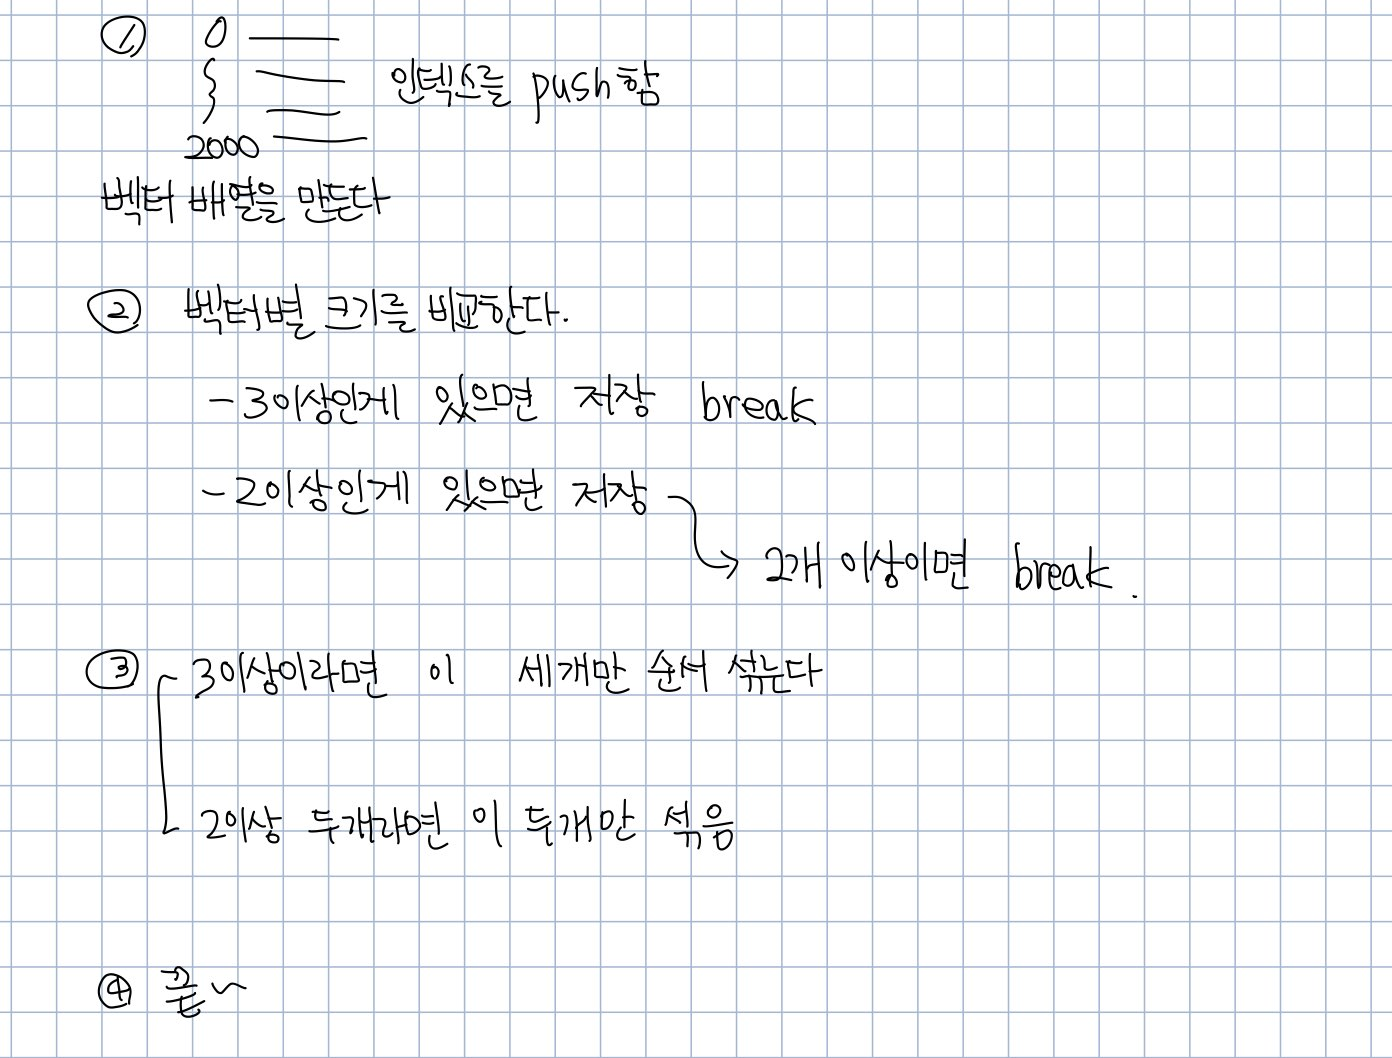 ① 0
인덱스를 push함
2000
벡터 배열을 만든다
② 벡터별 크기를 비교한다.
- 3이상인게 있으면 저장 break
- 2이상인게 있으면 저장
→ 2개 이상이면 break.
③ 3이상이라면 이 세개만 순서 섞는다
2이상 두개라면 이 두개만 섞음
④ 끝~